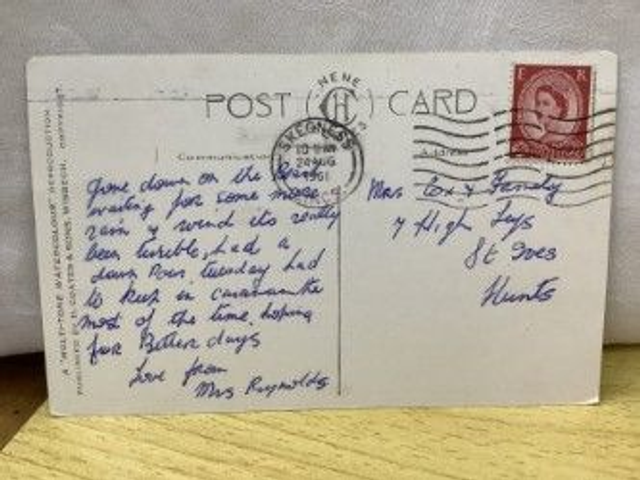 NENE
POST CH CARD
SKEGNESS
24 AUG
1961
Communication
Address
E R
A "MULTI-TONE WATERCOLOUR" REPRODUCTION
PUBLISHED BY H. COATES & SONS, WISBECH. COPYRIGHT
down on the
waiting for some more
rain & wind its really
been terrible, had a
down Pour tuesday had
to keep in caravan the
most of the time, hoping
for Better days
Love from
Mrs Reynolds
Mrs Cox & Family
7 High Leys
St Ives
Hunts